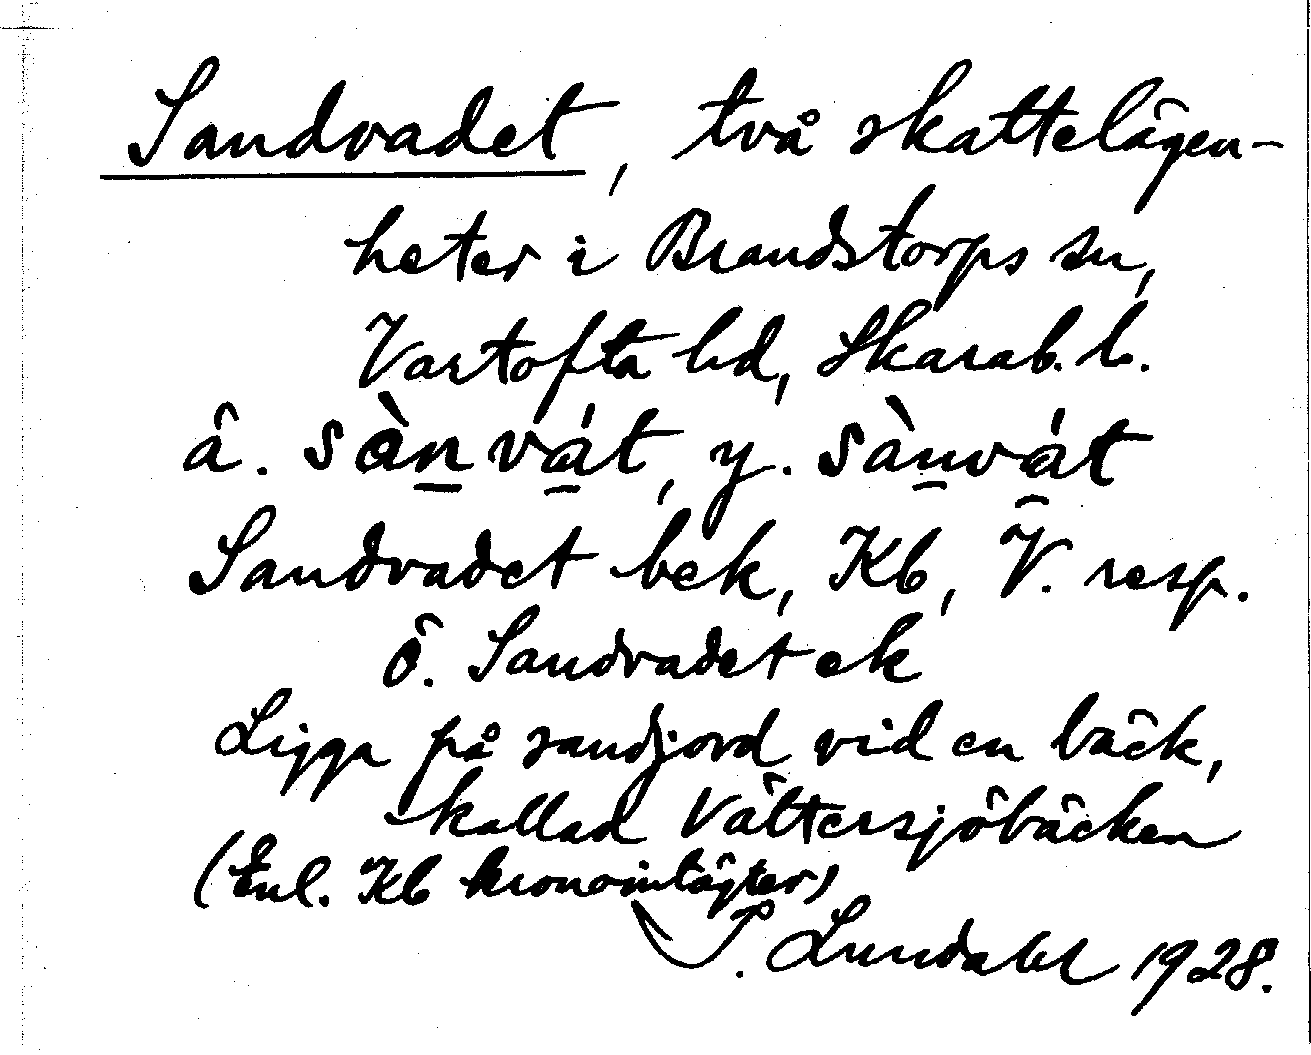 Sandvadet, två skattelägen-
heter i Brandstorps sn,
Vartofta hd, Skarab. l.
ä. sànvát, y. sànvát
Sandvadet bek, Kb, V. resp.
Ö. Sandvadet ek
Ligga på sandjord vid en bäck,
kallad Vättersjöbäcken
(Enl. Kb kronointägter)
J. Lundahl 1928.